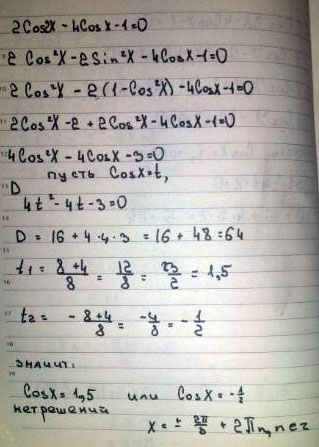 2Cos2x - 4Cosx - 1 = 0
2 Cos²x - 2Sin²x - 4Cosx - 1 = 0
2 Cos²x - 2(1 - Cos²x) - 4Cosx - 1 = 0
2Cos²x - 2 + 2Cos²x - 4Cosx - 1 = 0
4Cos²x - 4Cosx - 3 = 0
пусть Cosx = t,
D
4t² - 4t - 3 = 0
D = 16 + 4·4·3 = 16 + 48 = 64
t₁ = 8+4/8 = 12/8 = 3/2 = 1,5
t₂ = -8+4/8 = -4/8 = -1/2
значит:
Cosx = 1,5 или Cosx = -1/2
нет решений
x = ± 2π/3 + 2πn, n ∈ z